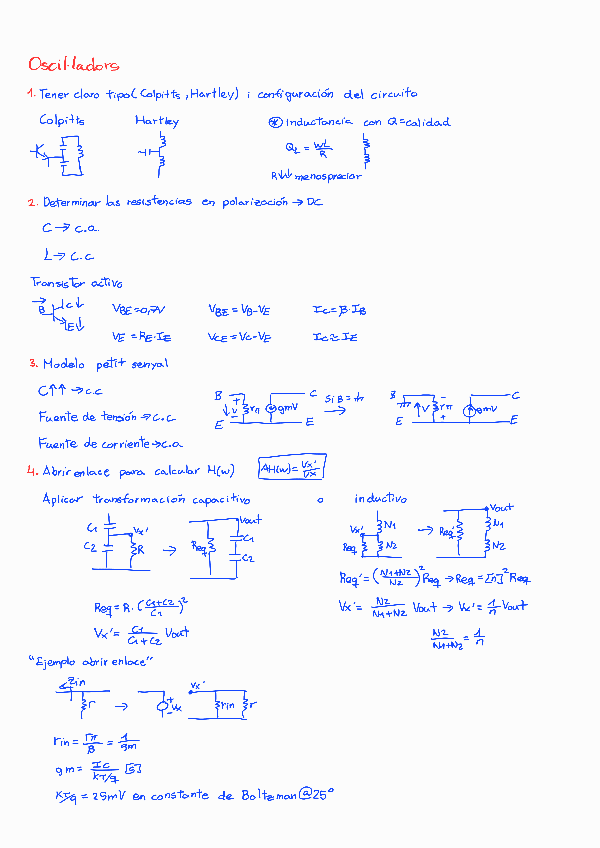 Oscil·ladors
1. Tener claro tipo (Colpitts, Hartley) i configuración del circuito
Colpitts Hartley ⊛ Inductancia con Q=calidad
QL = WL/R
R↓↓ menospreciar
2. Determinar las resistencias en polarización → DC
C → C.a.
L → C.C
Transistor activo
B C↓ E↓ VBE=0,7V VBE=VB-VE IC=β·IB
VE=RE·IE VCE=VC-VE IC≃IE
3. Modelo petit senyal
C↑↑ → C.C
B + V rπ gmV C E E Si B = → B V rπ + gmV C E E
Fuente de tensión → C.C
Fuente de corriente → C.a
4. Abrir enlace para calcular H(w) AH(w)=Vx'/Vx
Aplicar transformación capacitivo o inductivo
C1 C2 Vx' R → Req Vout C1 C2
Vx' Req N1 N2 → Req' Vout N1 N2
Req' = ((N1+N2)/N2)² Req → Req = [n]² Req
Req = R·((C1+C2)/C1)²
Vx' = N2/(N1+N2) Vout → Vx' = 1/n Vout
Vx' = C1/(C1+C2) Vout
N2/(N1+N2) = 1/n
"Ejemplo abrir enlace"
Zin r → + - Vx Vx' rin r
rin = rπ/β = 1/gm
gm = IC/(KT/q) [S]
KT/q = 25mV en constante de Bolteman @25°